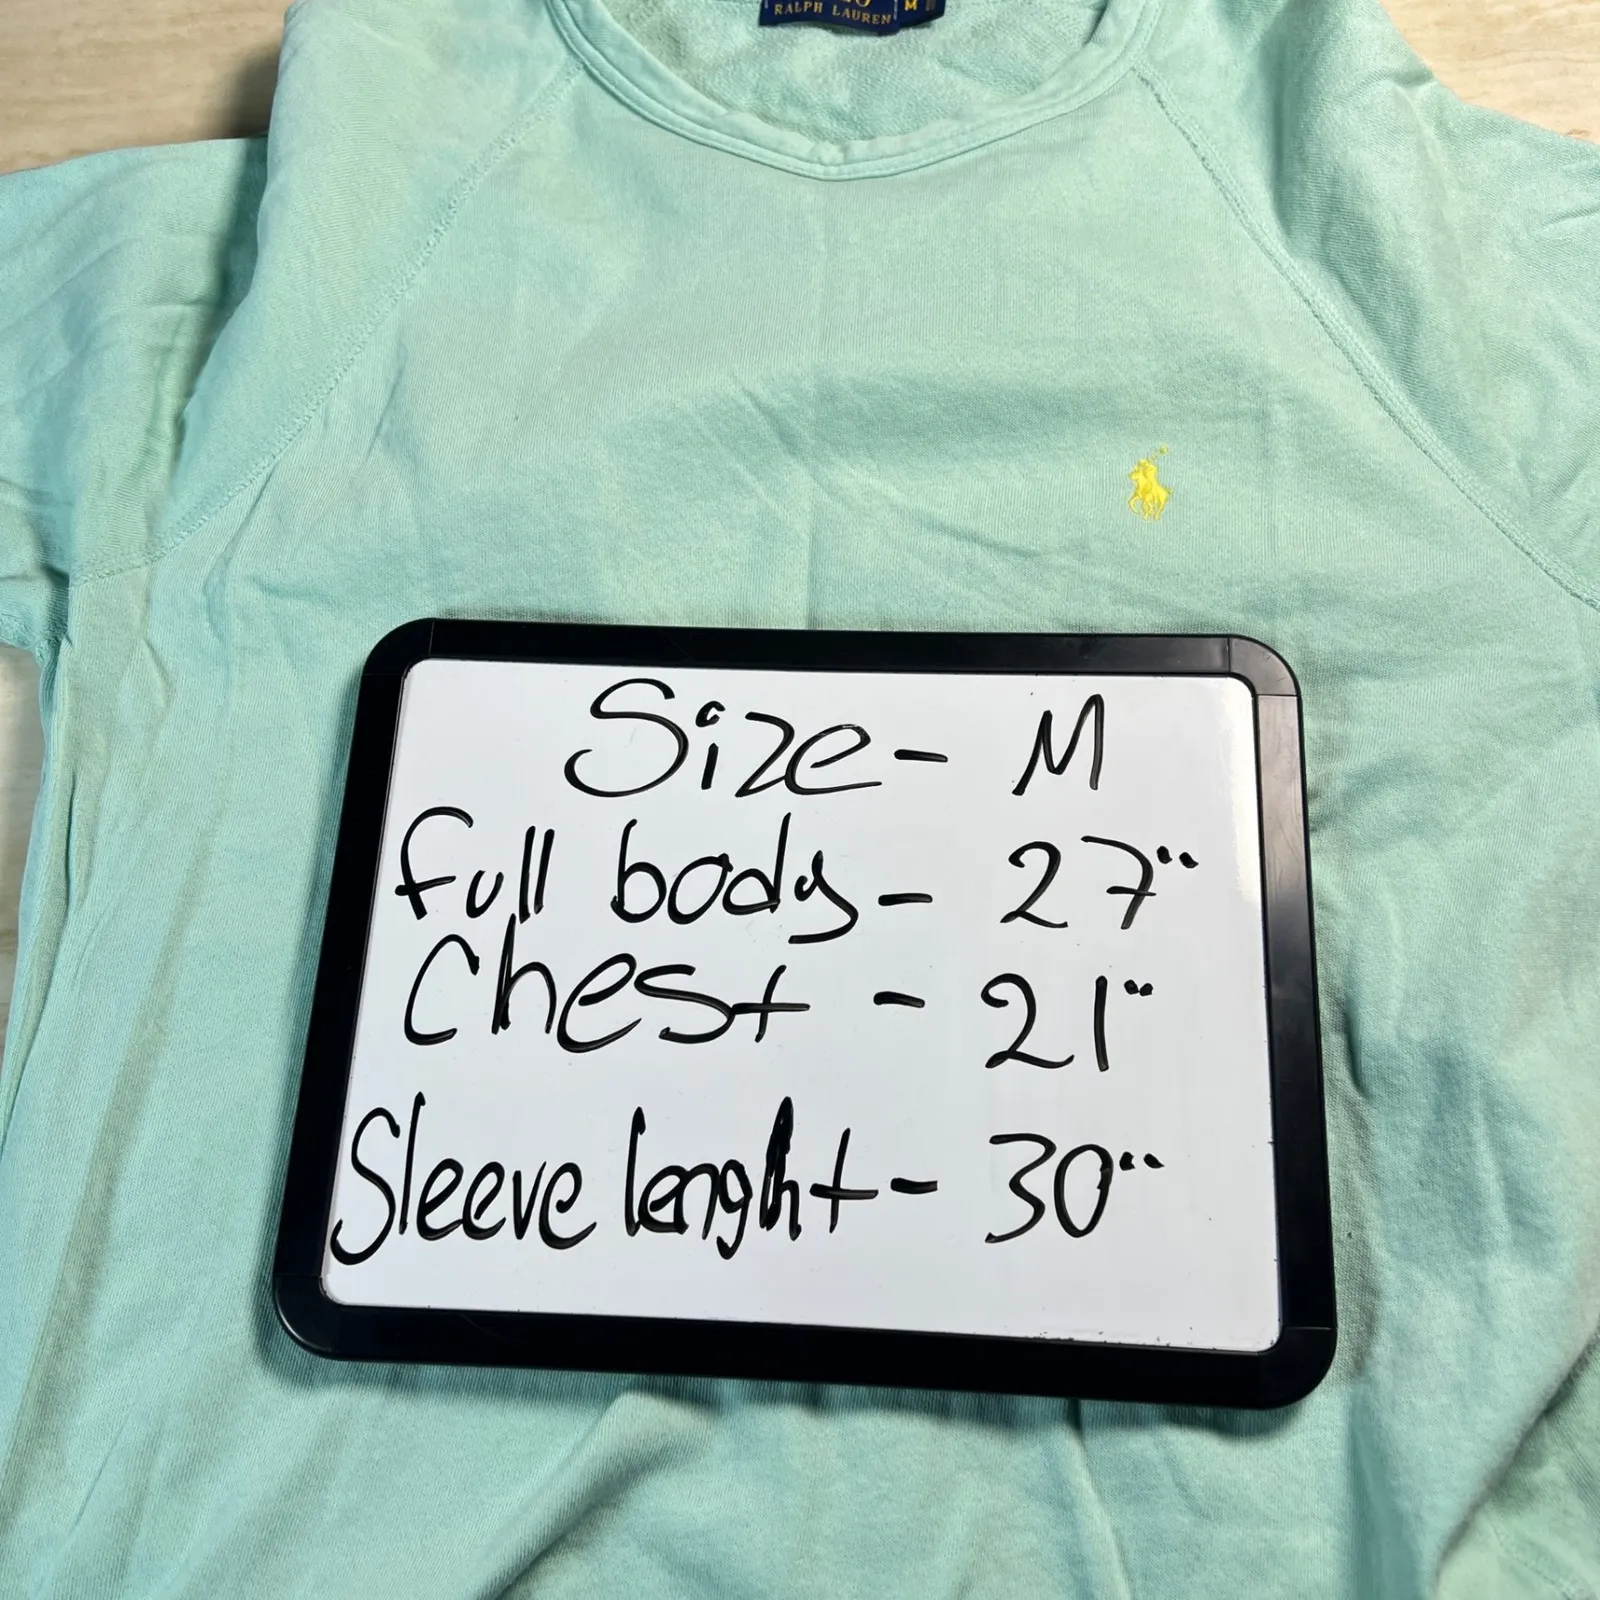 RALPH LAUREN
M
Size - M
Full body - 27"
Chest - 21"
Sleeve lenght - 30"